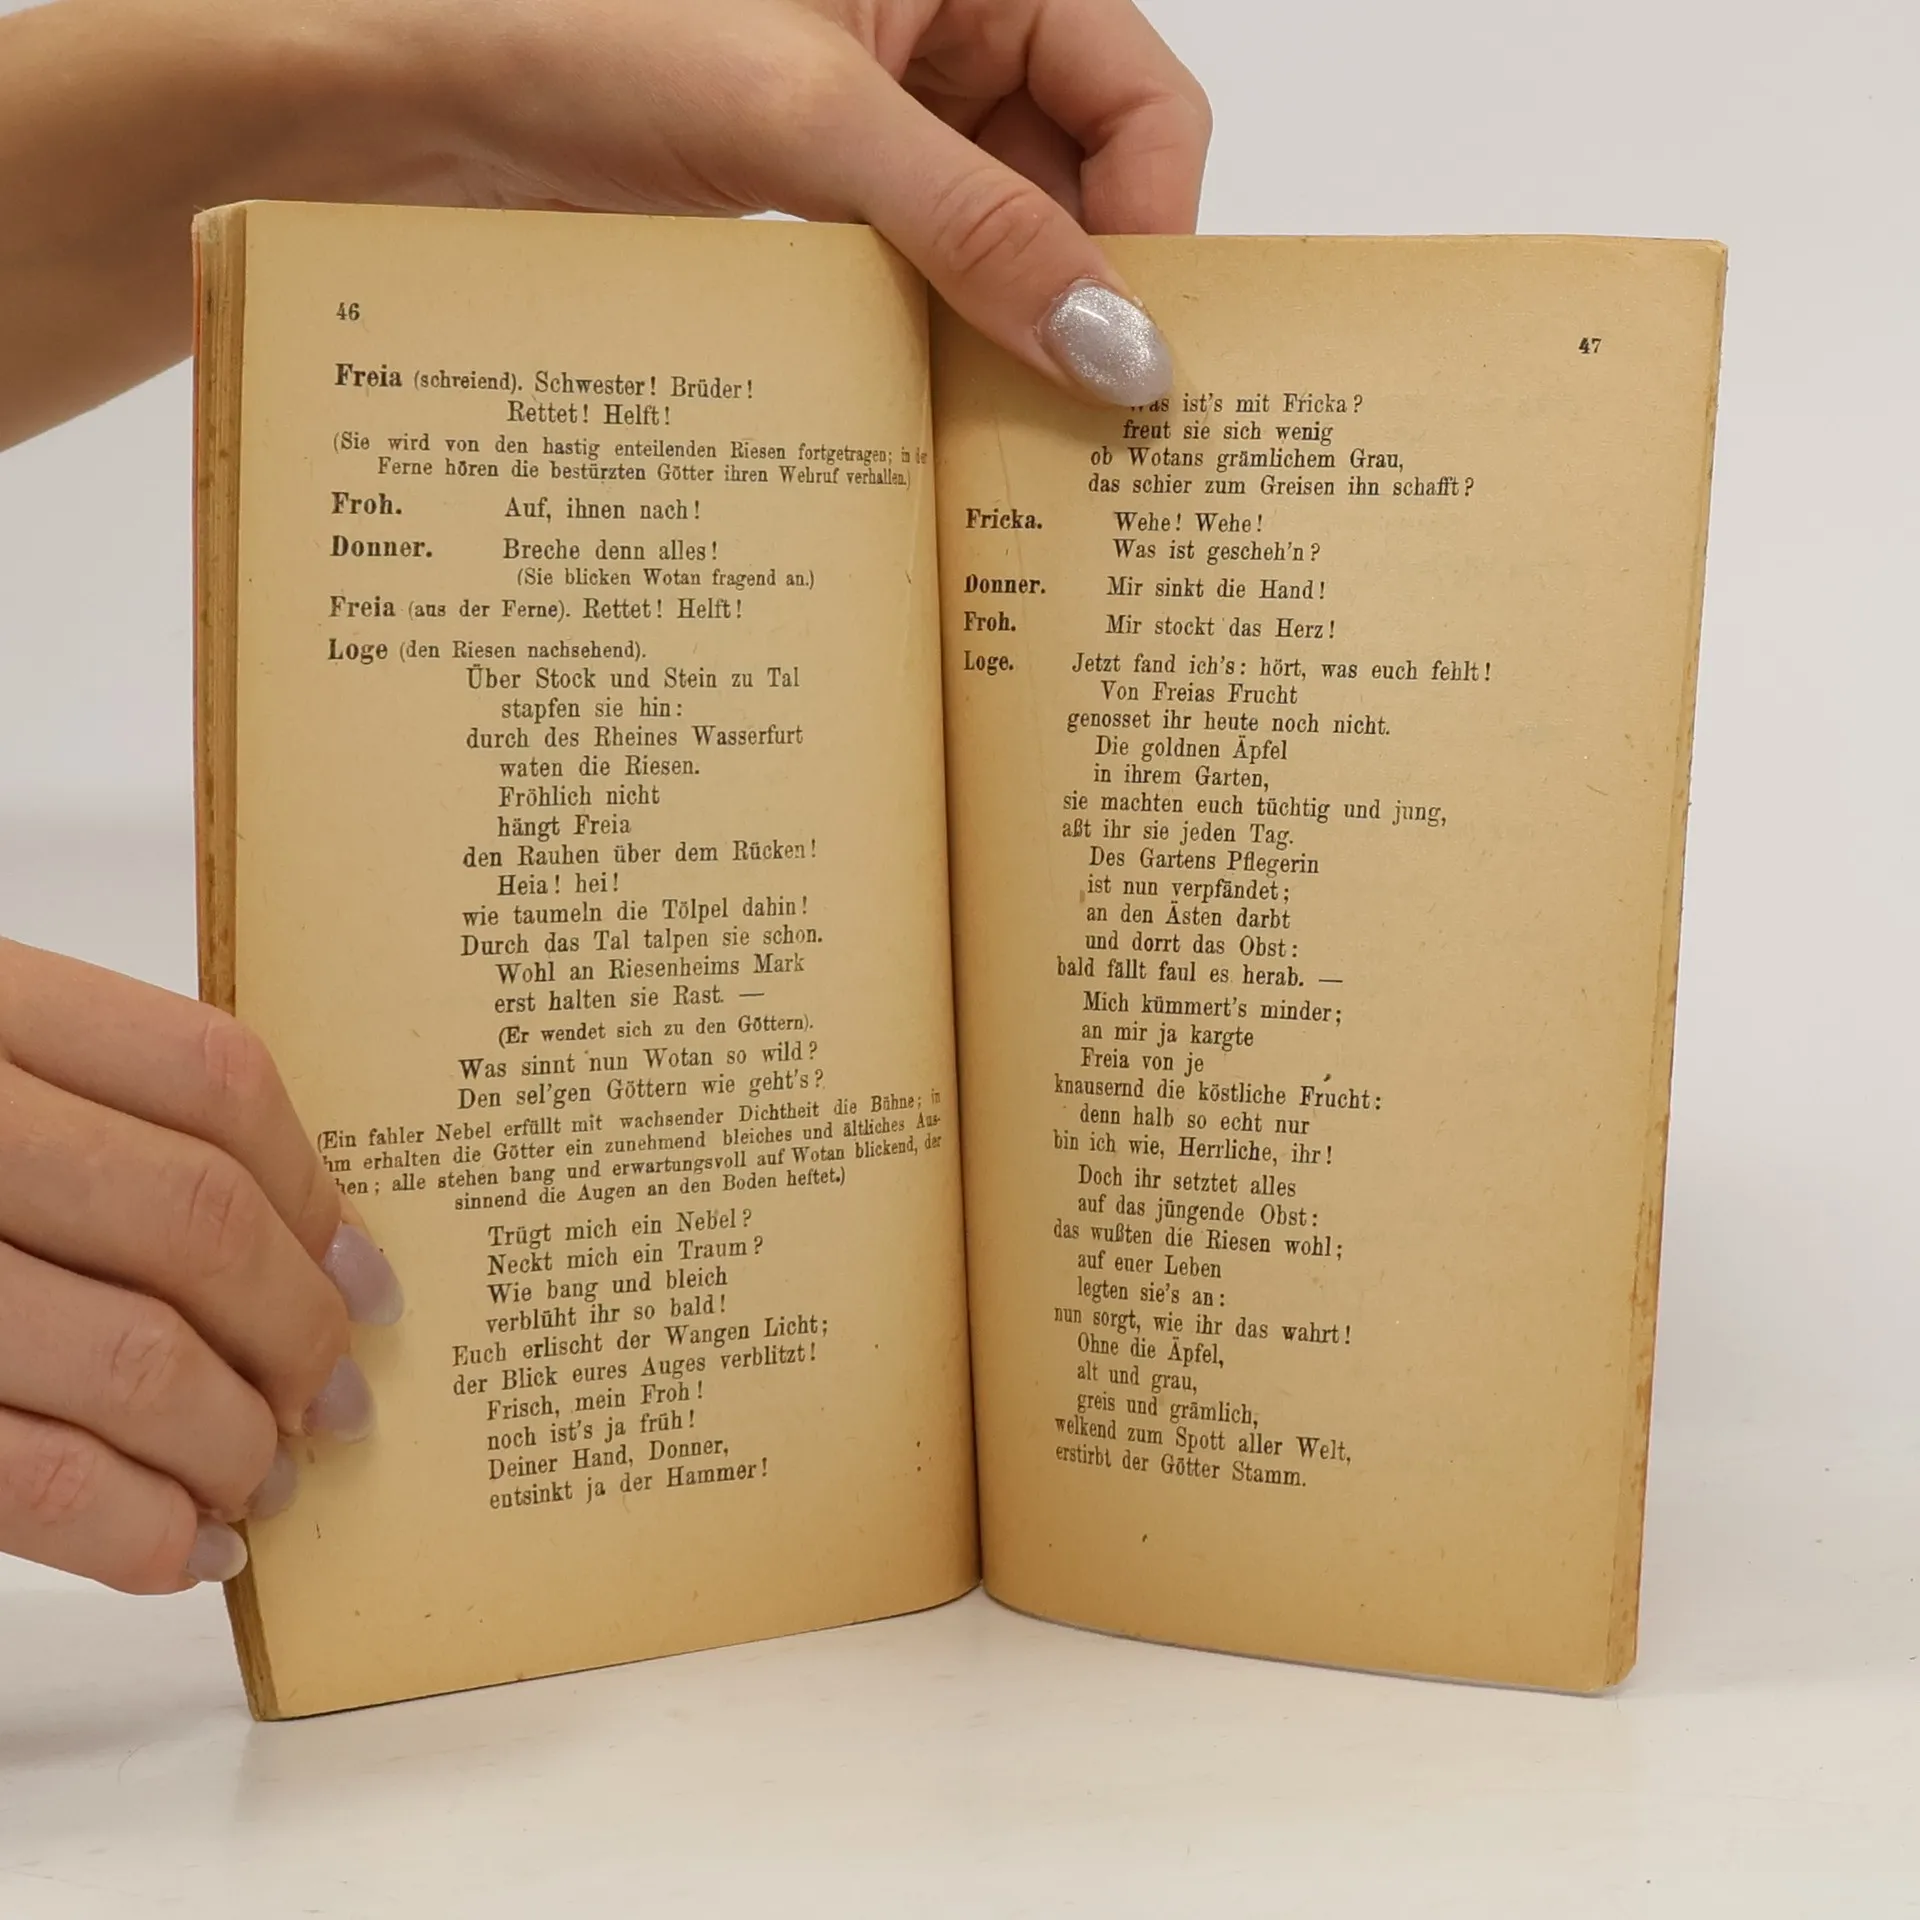 46
Freia (schreiend). Schwester! Brüder!
Rettet! Helft!
(Sie wird von den hastig enteilenden Riesen fortgetragen; in der
Ferne hören die bestürzten Götter ihren Wehruf verhallen.)
Froh. Auf, ihnen nach!
Donner. Breche denn alles!
(Sie blicken Wotan fragend an.)
Freia (aus der Ferne). Rettet! Helft!
Loge (den Riesen nachsehend).
Über Stock und Stein zu Tal
stapfen sie hin:
durch des Rheines Wasserfurt
waten die Riesen.
Fröhlich nicht
hängt Freia
den Rauhen über dem Rücken!
Heia! hei!
wie taumeln die Tölpel dahin!
Durch das Tal talpen sie schon.
Wohl an Riesenheims Mark
erst halten sie Rast. —
(Er wendet sich zu den Göttern).
Was sinnt nun Wotan so wild?
Den sel'gen Göttern wie geht's?
(Ein fahler Nebel erfüllt mit wachsender Dichtheit die Bühne; in
erhalten die Götter ein zunehmend bleiches und ältliches Aus-
; alle stehen bang und erwartungsvoll auf Wotan blickend, der
sinnend die Augen an den Boden heftet.)
Trügt mich ein Nebel?
Neckt mich ein Traum?
Wie bang und bleich
verblüht ihr so bald!
Euch erlischt der Wangen Licht;
der Blick eures Auges verblitzt!
Frisch, mein Froh!
noch ist's ja früh!
Deiner Hand, Donner,
entsinkt ja der Hammer!
47
Was ist's mit Fricka?
freut sie sich wenig
ob Wotans grämlichem Grau,
das schier zum Greisen ihn schafft?
Fricka. Wehe! Wehe!
Was ist gescheh'n?
Donner. Mir sinkt die Hand!
Froh. Mir stockt das Herz!
Loge. Jetzt fand ich's: hört, was euch fehlt!
Von Freias Frucht
genosset ihr heute noch nicht.
Die goldnen Äpfel
in ihrem Garten,
sie machten euch tüchtig und jung,
aßt ihr sie jeden Tag.
Des Gartens Pflegerin
ist nun verpfändet;
an den Ästen darbt
und dorrt das Obst:
bald fällt faul es herab. —
Mich kümmert's minder;
an mir ja kargte
Freia von je
knausernd die köstliche Frucht:
denn halb so echt nur
bin ich wie, Herrliche, ihr!
Doch ihr setztet alles
auf das jüngende Obst:
das wußten die Riesen wohl;
auf euer Leben
legten sie's an:
nun sorgt, wie ihr das wahrt!
Ohne die Äpfel,
alt und grau,
greis und grämlich,
welkend zum Spott aller Welt,
erstirbt der Götter Stamm.